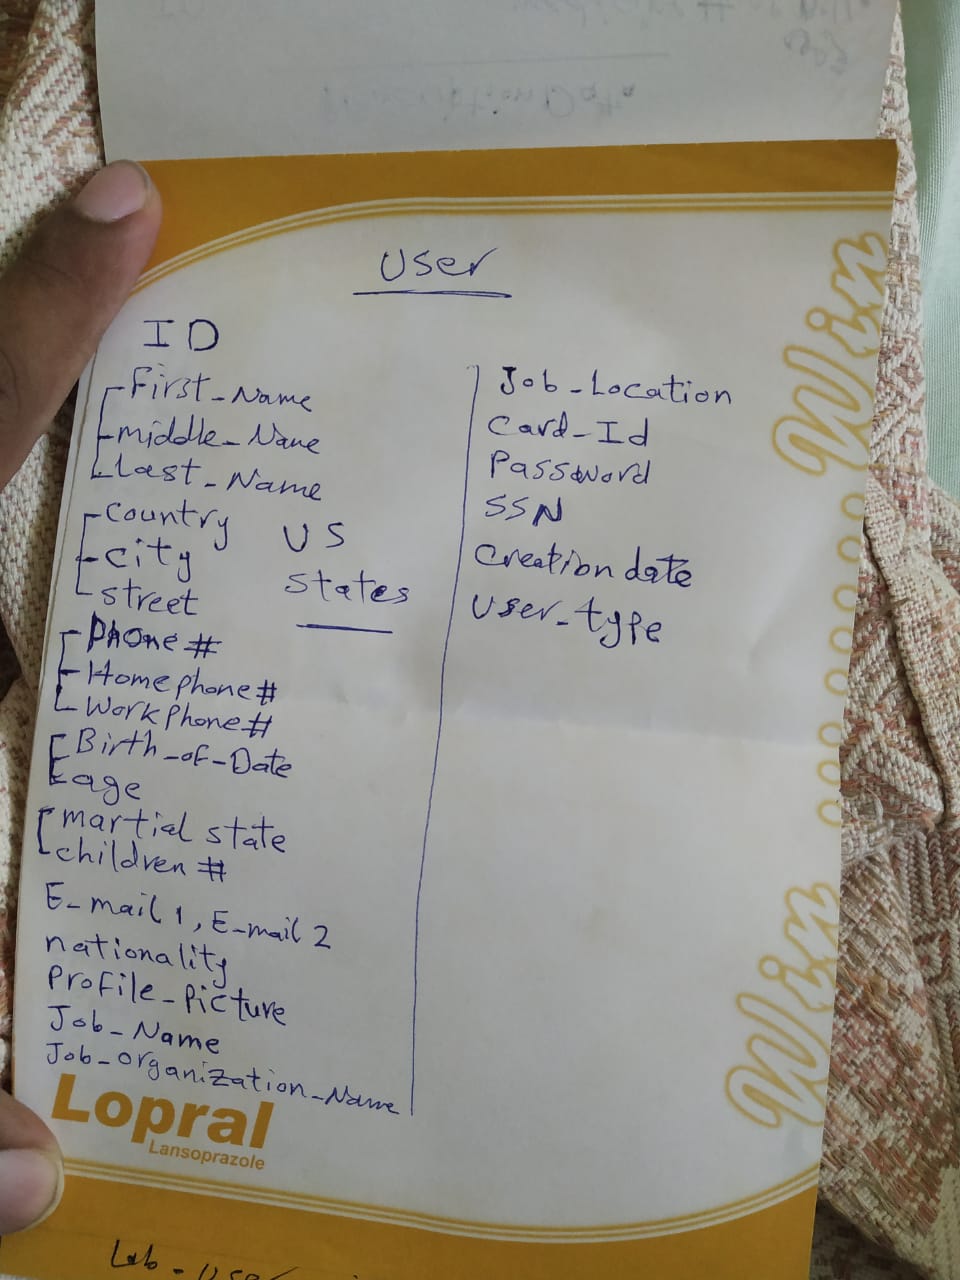 User
ID
First_Name
middle_Name
Last_Name
Country
City
street
US
states
Phone #
Home phone #
Work Phone #
Birth_of_Date
age
martial state
children #
E_mail 1, E_mail 2
nationality
Profile_Picture
Job_Name
Job_organization_Name
Job_Location
Card_Id
Password
SSN
Creation date
User_type
Win
Win
Lopral
Lansoprazole
Lab_User